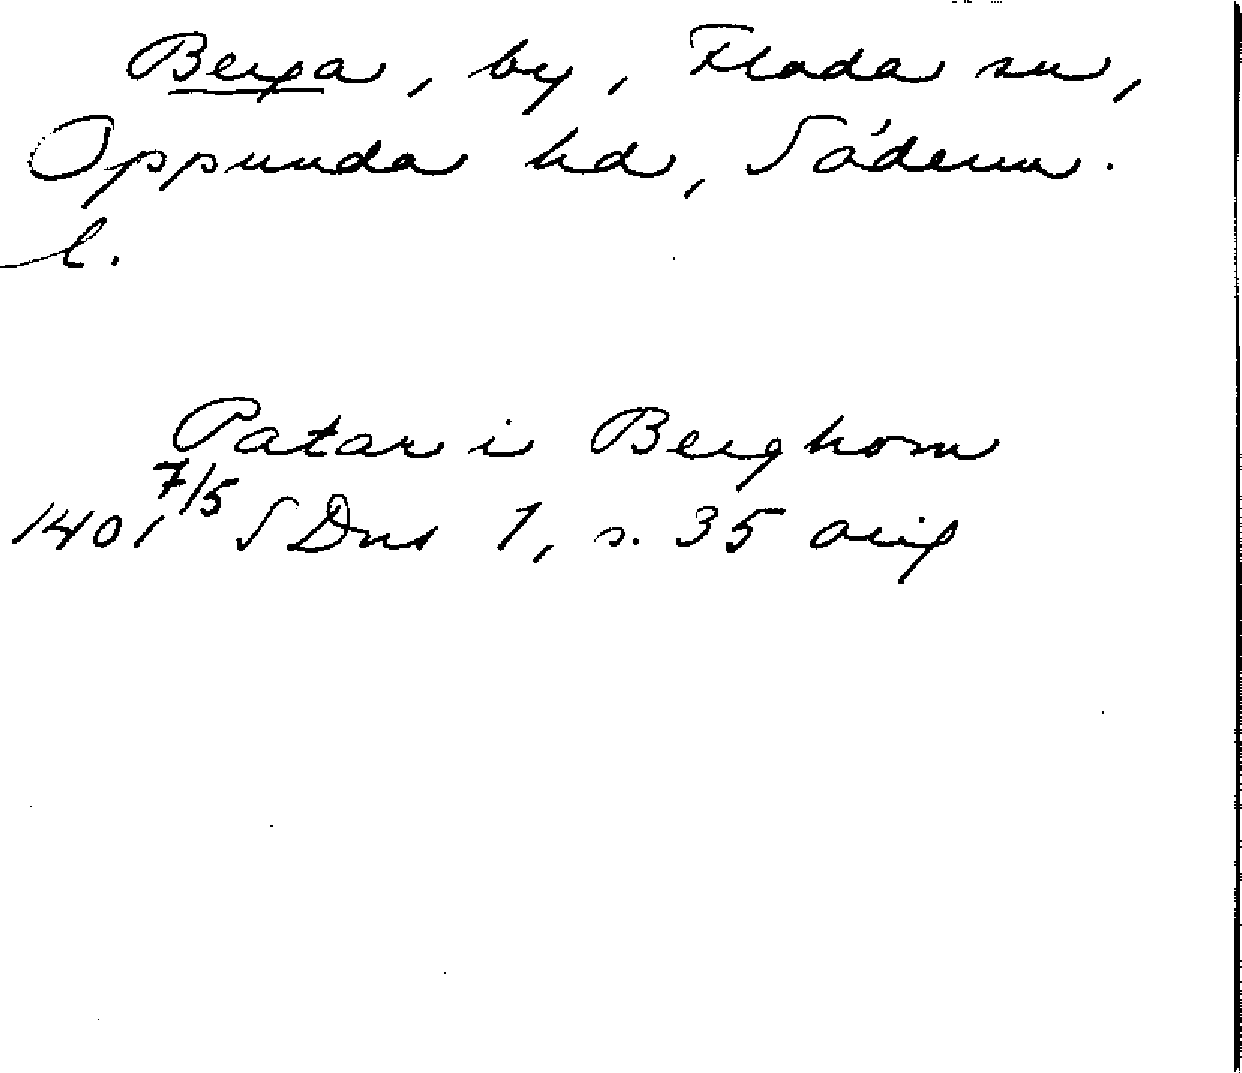 Berga, by, Floda sn,
Oppunda hd, Söderm.
l.
Patar i Berghom
1401 7/5 SDns 1, s. 35 orig